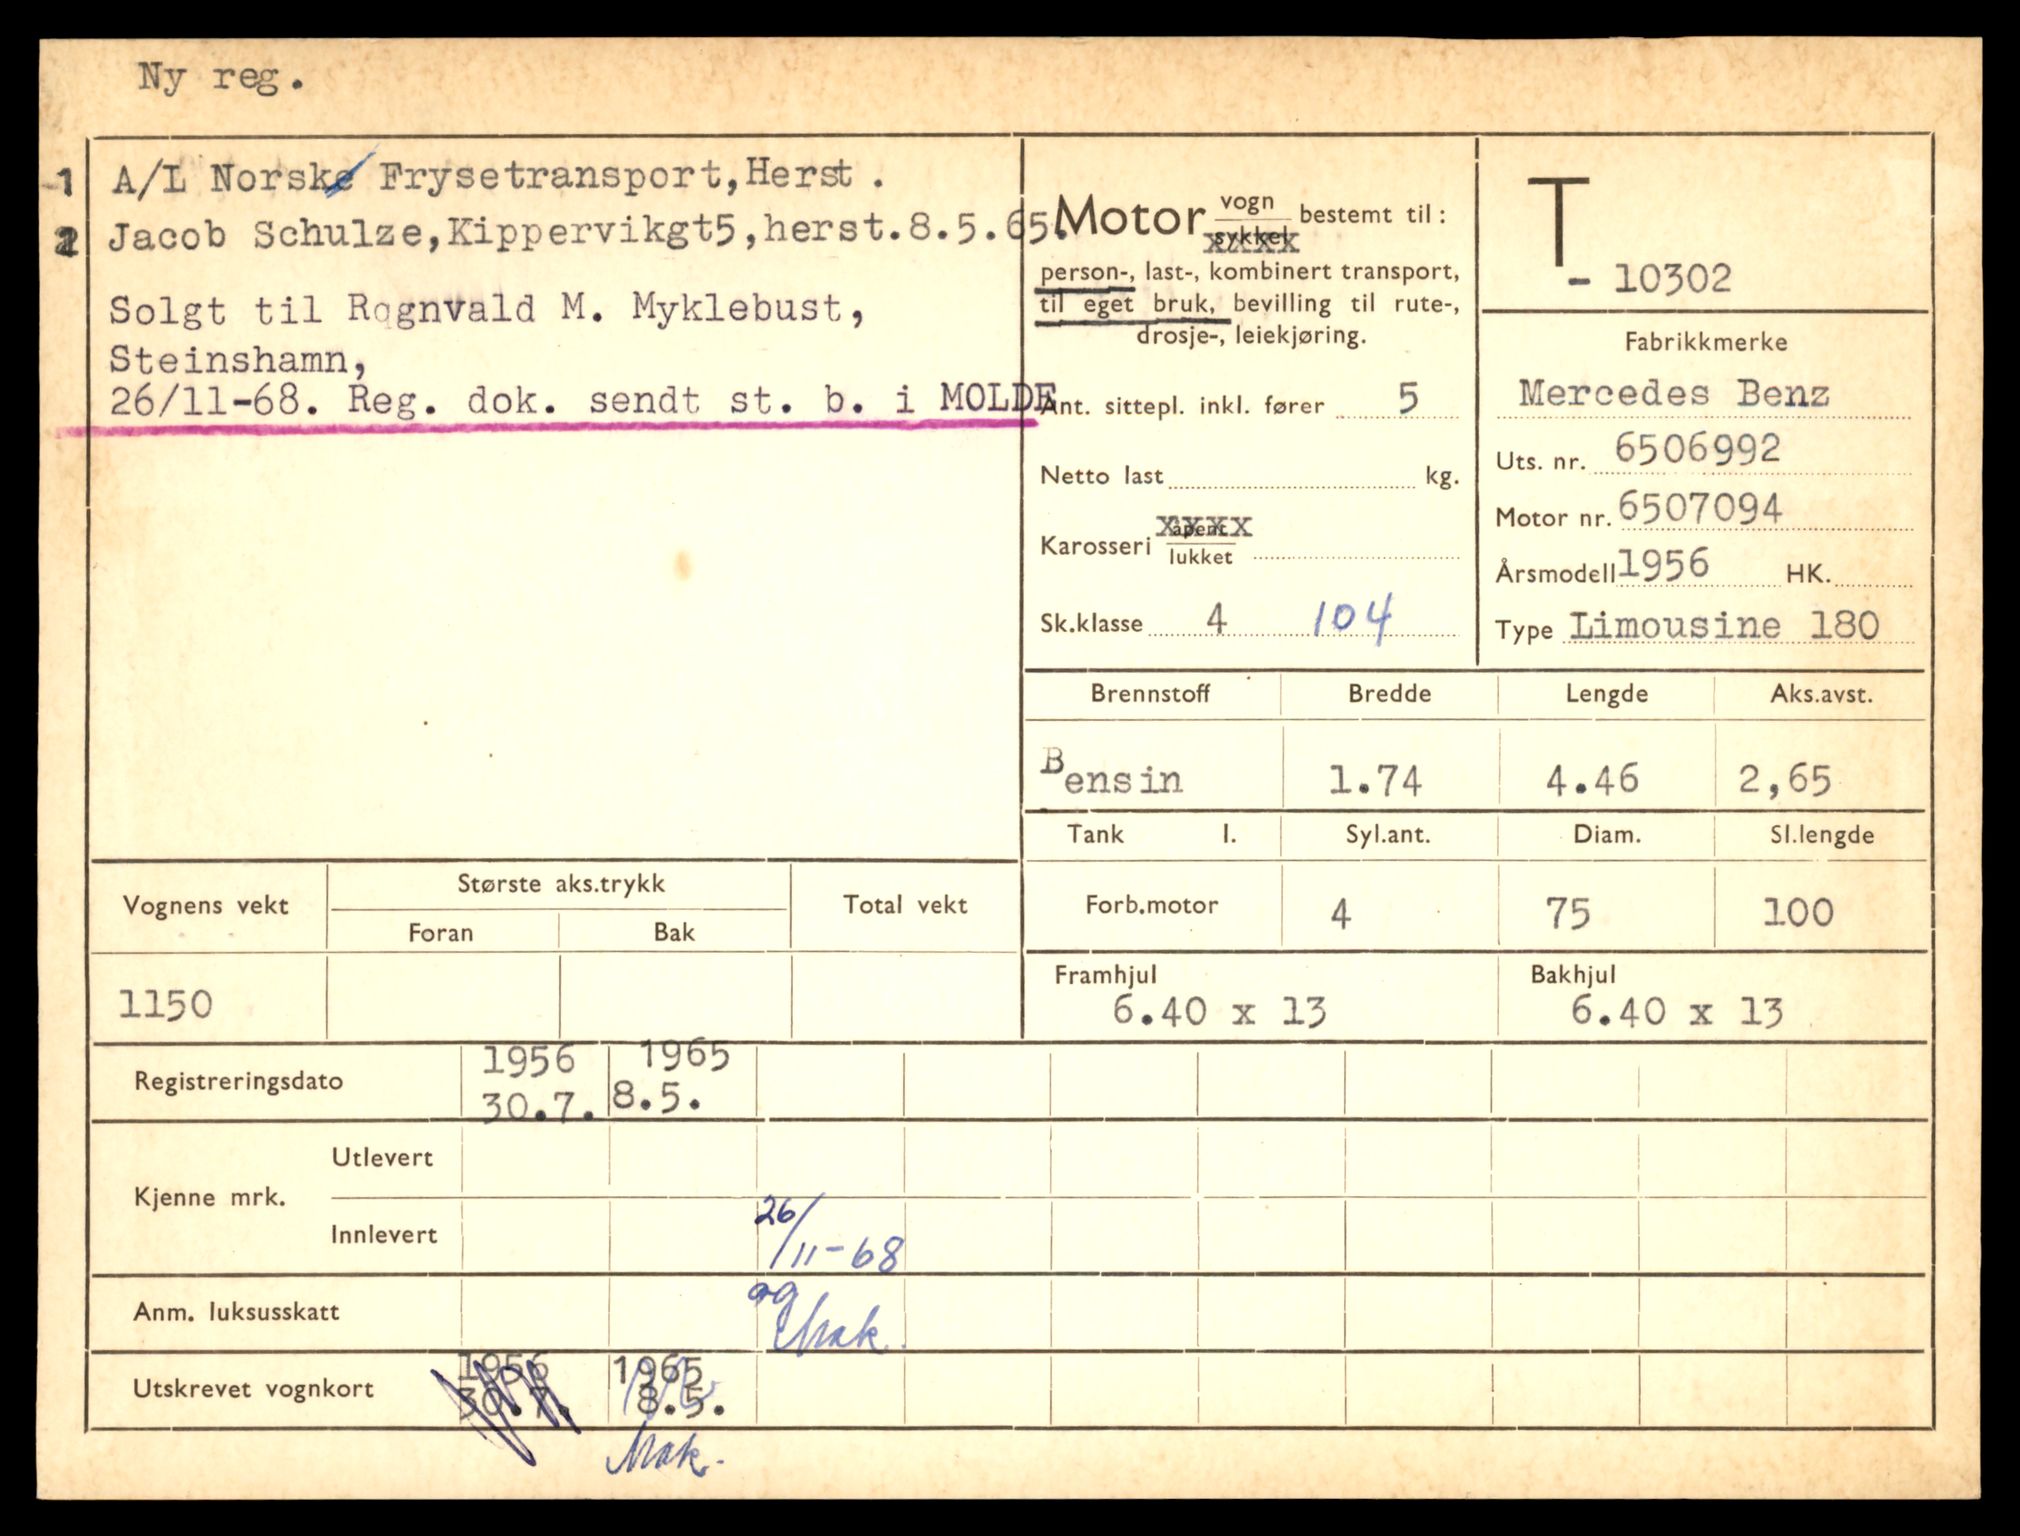 Ny reg.
1 A/L Norske Frysetransport,Herst .
2 Jacob Schulze,Kippervikgt5,herst.8.5.65.
Solgt til Ragnvald M. Myklebust,
Steinshamn,
26/11-68. Reg. dok. sendt st. b. i MOLDE
Motor vogn bestemt til:
sykkel
person-, last-, kombinert transport,
til eget bruk, bevilling til rute-,
drosje-, leiekjøring.
Ant. sittepl. inkl. fører 5
Netto last kg.
Karosseri åpent
lukket
Sk.klasse 4 104
T
- 10302
Fabrikkmerke
Mercedes Benz
Uts. nr. 6506992
Motor nr. 6507094
Årsmodell 1956 HK.
Type Limousine 180
Brennstoff Bredde Lengde Aks.avst.
Bensin 1.74 4.46 2,65
Tank l. Syl.ant. Diam. Sl.lengde
Forb.motor 4 75 100
Framhjul Bakhjul
6.40 x 13 6.40 x 13
Vognens vekt Største aks.trykk Total vekt
Foran Bak
1150
Registreringsdato 1956 1965
30.7. 8.5.
Kjenne mrk. Utlevert
Innlevert 26/11-68
Anm. luksusskatt
Utskrevet vognkort 1956 1965
30.7. 8.5.